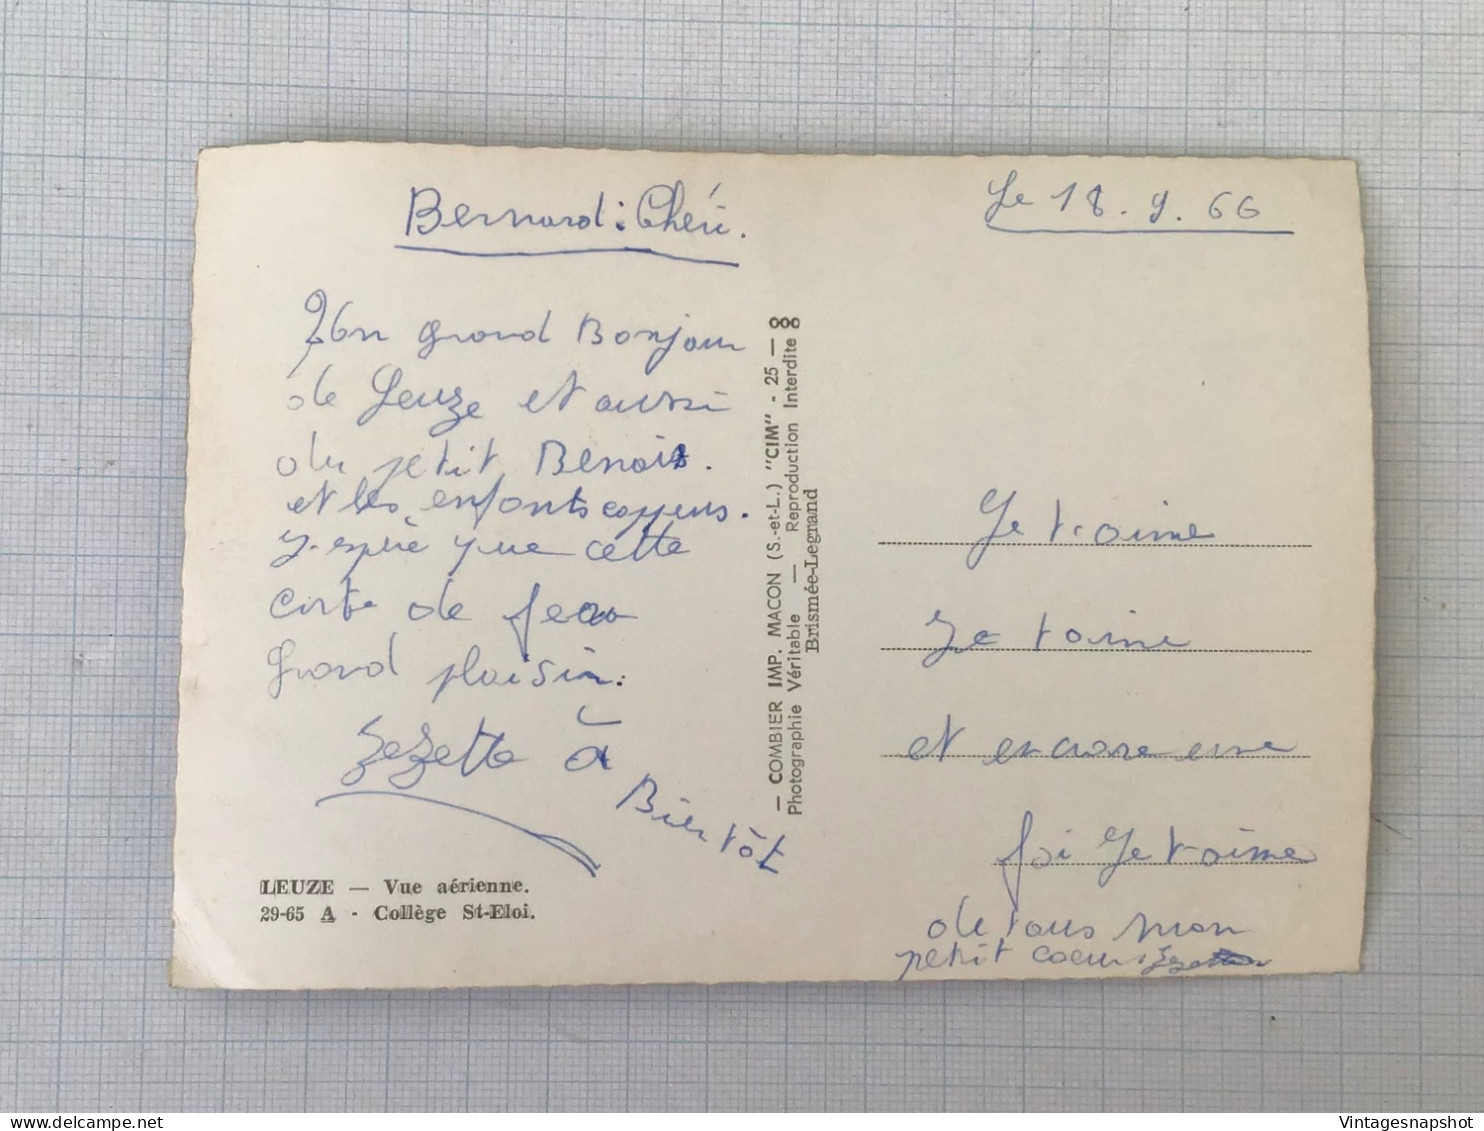 Bernard : Chéri.
Le 18. 9. 66
Un grand Bonjour
de Leuze et aussi
du petit Benoit.
et les enfants
J-espère que cette
carte de fera
grand plaisir.
Zezette à
Bientôt
LEUZE — Vue aérienne.
29-65 A - Collège St-Eloi.
— COMBIER IMP. MACON (S.-et-L.) "CIM" - 25 —
Photographie Véritable — Reproduction Interdite
Brismée-Legrand
Je t-aime
Je taime
et encore une
foi Je t-aime
de tous mon
petit coeur Zezette
Vintagesnapshot